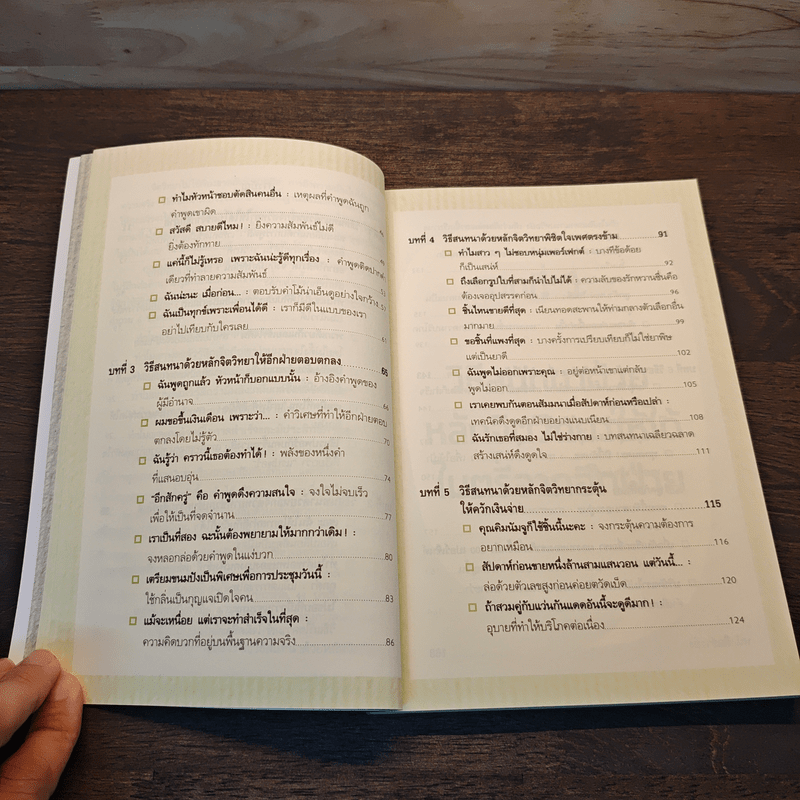 ทำไมหัวหน้าชอบตัดสินคนอื่น : เหตุผลที่คำพูดฉันถูก
คำพูดเขาผิด
สวัสดี สบายดีไหม! : ยิ่งความสัมพันธ์ไม่ดี
ยิ่งต้องทักทาย
แค่นี้ก็ไม่รู้เหรอ เพราะฉันน่ะรู้ดีทุกเรื่อง : คำพูดติดปาก
เดียวที่ทำลายความสัมพันธ์
ฉันน่ะนะ เมื่อก่อน... : ตอบรับคำโม้น่าเอ็นดูอย่างใจกว้าง
ฉันเป็นทุกข์เพราะเพื่อนได้ดี : เราก็มีดีในแบบของเรา
อย่าไปเทียบกับใครเลย 61
บทที่ 3 วิธีสนทนาด้วยหลักจิตวิทยาให้อีกฝ่ายตอบตกลง 65
ฉันพูดถูกแล้ว หัวหน้าก็บอกแบบนั้น : อ้างอิงคำพูดของ
ผู้มีอำนาจ 66
ผมขอขึ้นเงินเดือน เพราะว่า... : คำวิเศษที่ทำให้อีกฝ่ายตอบ
ตกลงโดยไม่รู้ตัว 70
ฉันรู้ว่า คราวนี้เธอต้องทำได้! : พลังของหนึ่งคำ
ที่แสนอบอุ่น 74
"อีกสักครู่" คือ คำพูดดึงความสนใจ : จงใจไม่จบเร็ว
เพื่อให้เป็นที่จดจำนาน 77
เราเป็นที่สอง ฉะนั้นต้องพยายามให้มากกว่าเดิม! :
จงหลอกล่อด้วยคำพูดในแง่บวก 80
เตรียมขนมปังเป็นพิเศษเพื่อการประชุมวันนี้ :
ใช้กลิ่นเป็นกุญแจเปิดใจคน 83
แม้จะเหนื่อย แต่เราจะทำสำเร็จในที่สุด :
ความคิดบวกที่อยู่บนพื้นฐานความจริง 86
บทที่ 4 วิธีสนทนาด้วยหลักจิตวิทยาพิชิตใจเพศตรงข้าม 91
ทำไมสาว ๆ ไม่ชอบหนุ่มเพอร์เฟกต์ : บางทีข้อด้อย
ก็เป็นเสน่ห์ 92
ถึงเลือกรูปใบที่สามก็นำไปไม่ได้ : ความลับของรักหวานชื่นคือ
ต้องเจออุปสรรคก่อน 96
ชิ้นไหนขายดีที่สุด : เนียนทอดสะพานให้ท่ามกลางตัวเลือกอื่น
มากมาย 99
ขอชิ้นที่แพงที่สุด : บางครั้งการเปรียบเทียบก็ไม่ใช่ยาพิษ
แต่เป็นยาดี 102
ฉันพูดไม่ออกเพราะคุณ : อยู่ต่อหน้าเขาแต่กลับ
พูดไม่ออก 105
เราเคยพบกันตอนสัมมนาเมื่อสัปดาห์ก่อนหรือเปล่า :
เทคนิคดึงดูดอีกฝ่ายอย่างแนบเนียน 108
ฉันรักเธอที่สมอง ไม่ใช่ร่างกาย : บทสนทนาเฉลียวฉลาด
สร้างเสน่ห์ดึงดูดใจ 111
บทที่ 5 วิธีสนทนาด้วยหลักจิตวิทยากระตุ้น
ให้ควักเงินจ่าย 115
คุณคิมนัมจูก็ใช้ชิ้นนี้นะคะ : จงกระตุ้นความต้องการ
อยากเหมือน 116
สัปดาห์ก่อนขายหนึ่งล้านสามแสนวอน แต่วันนี้... :
ล่อด้วยตัวเลขสูงก่อนค่อยตวัดเบ็ด 120
ถ้าสวมคู่กับแว่นกันแดดอันนี้จะดูดีมาก! :
อุบายที่ทำให้บริโภคต่อเนื่อง 124